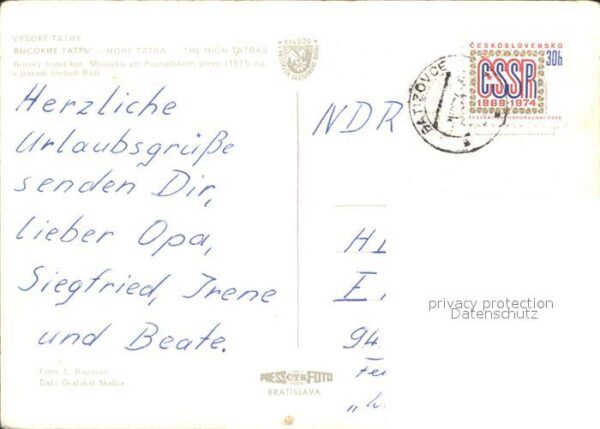 VYSOKÉ TATRY
ВЫСОКИЕ ТАТРЫ - HOHE TATRA - THE HIGH TATRAS
Horský hotel kpt. Morávku on Popradskom plese (1515 m)
v pozadí hrebeň Bášt
Herzliche
Urlaubsgrüße
senden Dir,
lieber Opa,
Siegfried, Irene
und Beate.
Foto L. Rozman
Tlač: Grafobal Skalica
PRESSFOTO
BRATISLAVA
BATIZOVCE
ČESKOSLOVENSKO
30h
ČSSR
1969-1974
NDR
H
E
94
privacy protection
Datenschutz